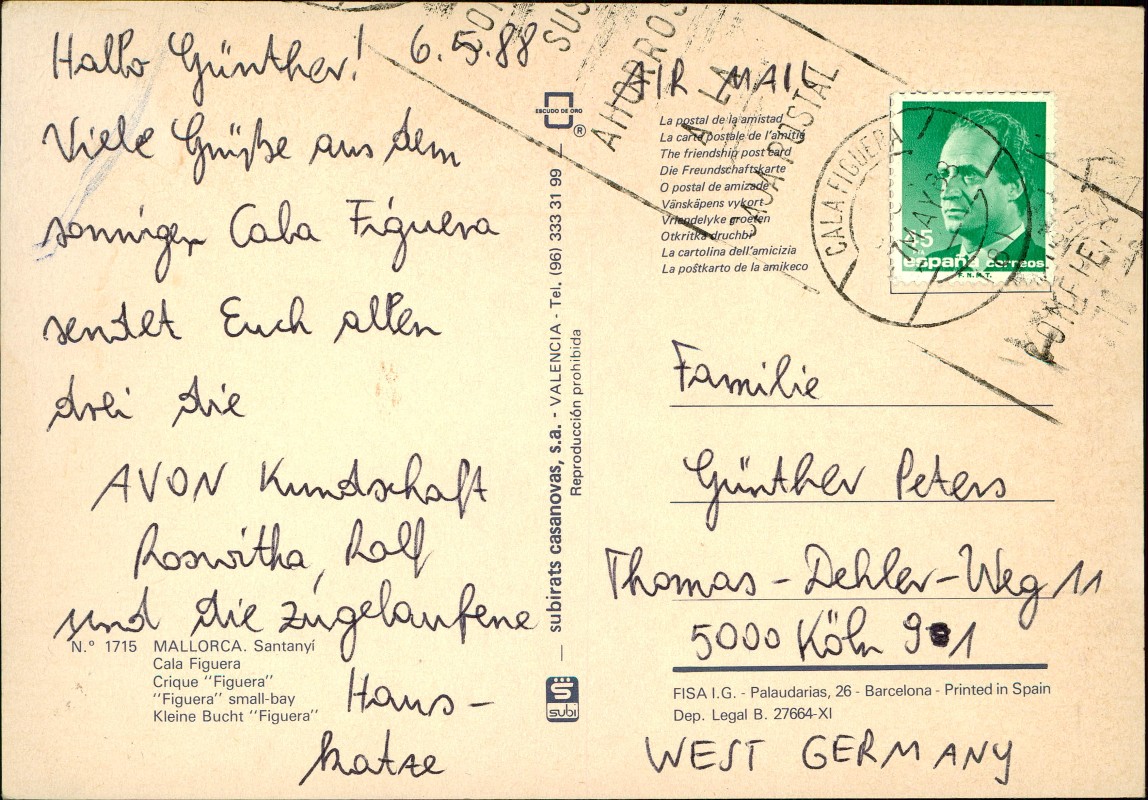 Hallo Günther! 6.5.88
Viele Grüße aus dem
sonnigen Cala Figuera
sendet Euch allen
drei die
AVON Kundschaft
Roswitha, Ralf
und die zugelaufene
Haus-
katze
Nº 1715 MALLORCA. Santanyí
Cala Figuera
Crique "Figuera"
"Figuera" small-bay
Kleine Bucht "Figuera"
ESCUDO DE ORO
®
subirats casanovas, s.a. - VALENCIA - Tel. (96) 333 31 99
Reproducción prohibida
subi
AIR MAIL
SUS
AHORROS
A LA
CAJA POSTAL
La postal de la amistad
La carte postale de l'amitié
The friendship post card
Die Freundschaftskarte
O postal de amizade
Vänskäpens vykort
Vriendelyke groeten
Otkritka druchbi
La cartolina dell'amicizia
La poŝtkarto de la amikeco
CALA FIGUERA
MAY 88
45
españa correos
F.N.M.T.
Familie
Günther Peters
Thomas-Dehler-Weg 11
5000 Köln 91
FISA I.G. - Palaudarias, 26 - Barcelona - Printed in Spain
Dep. Legal B. 27664-XI
WEST GERMANY